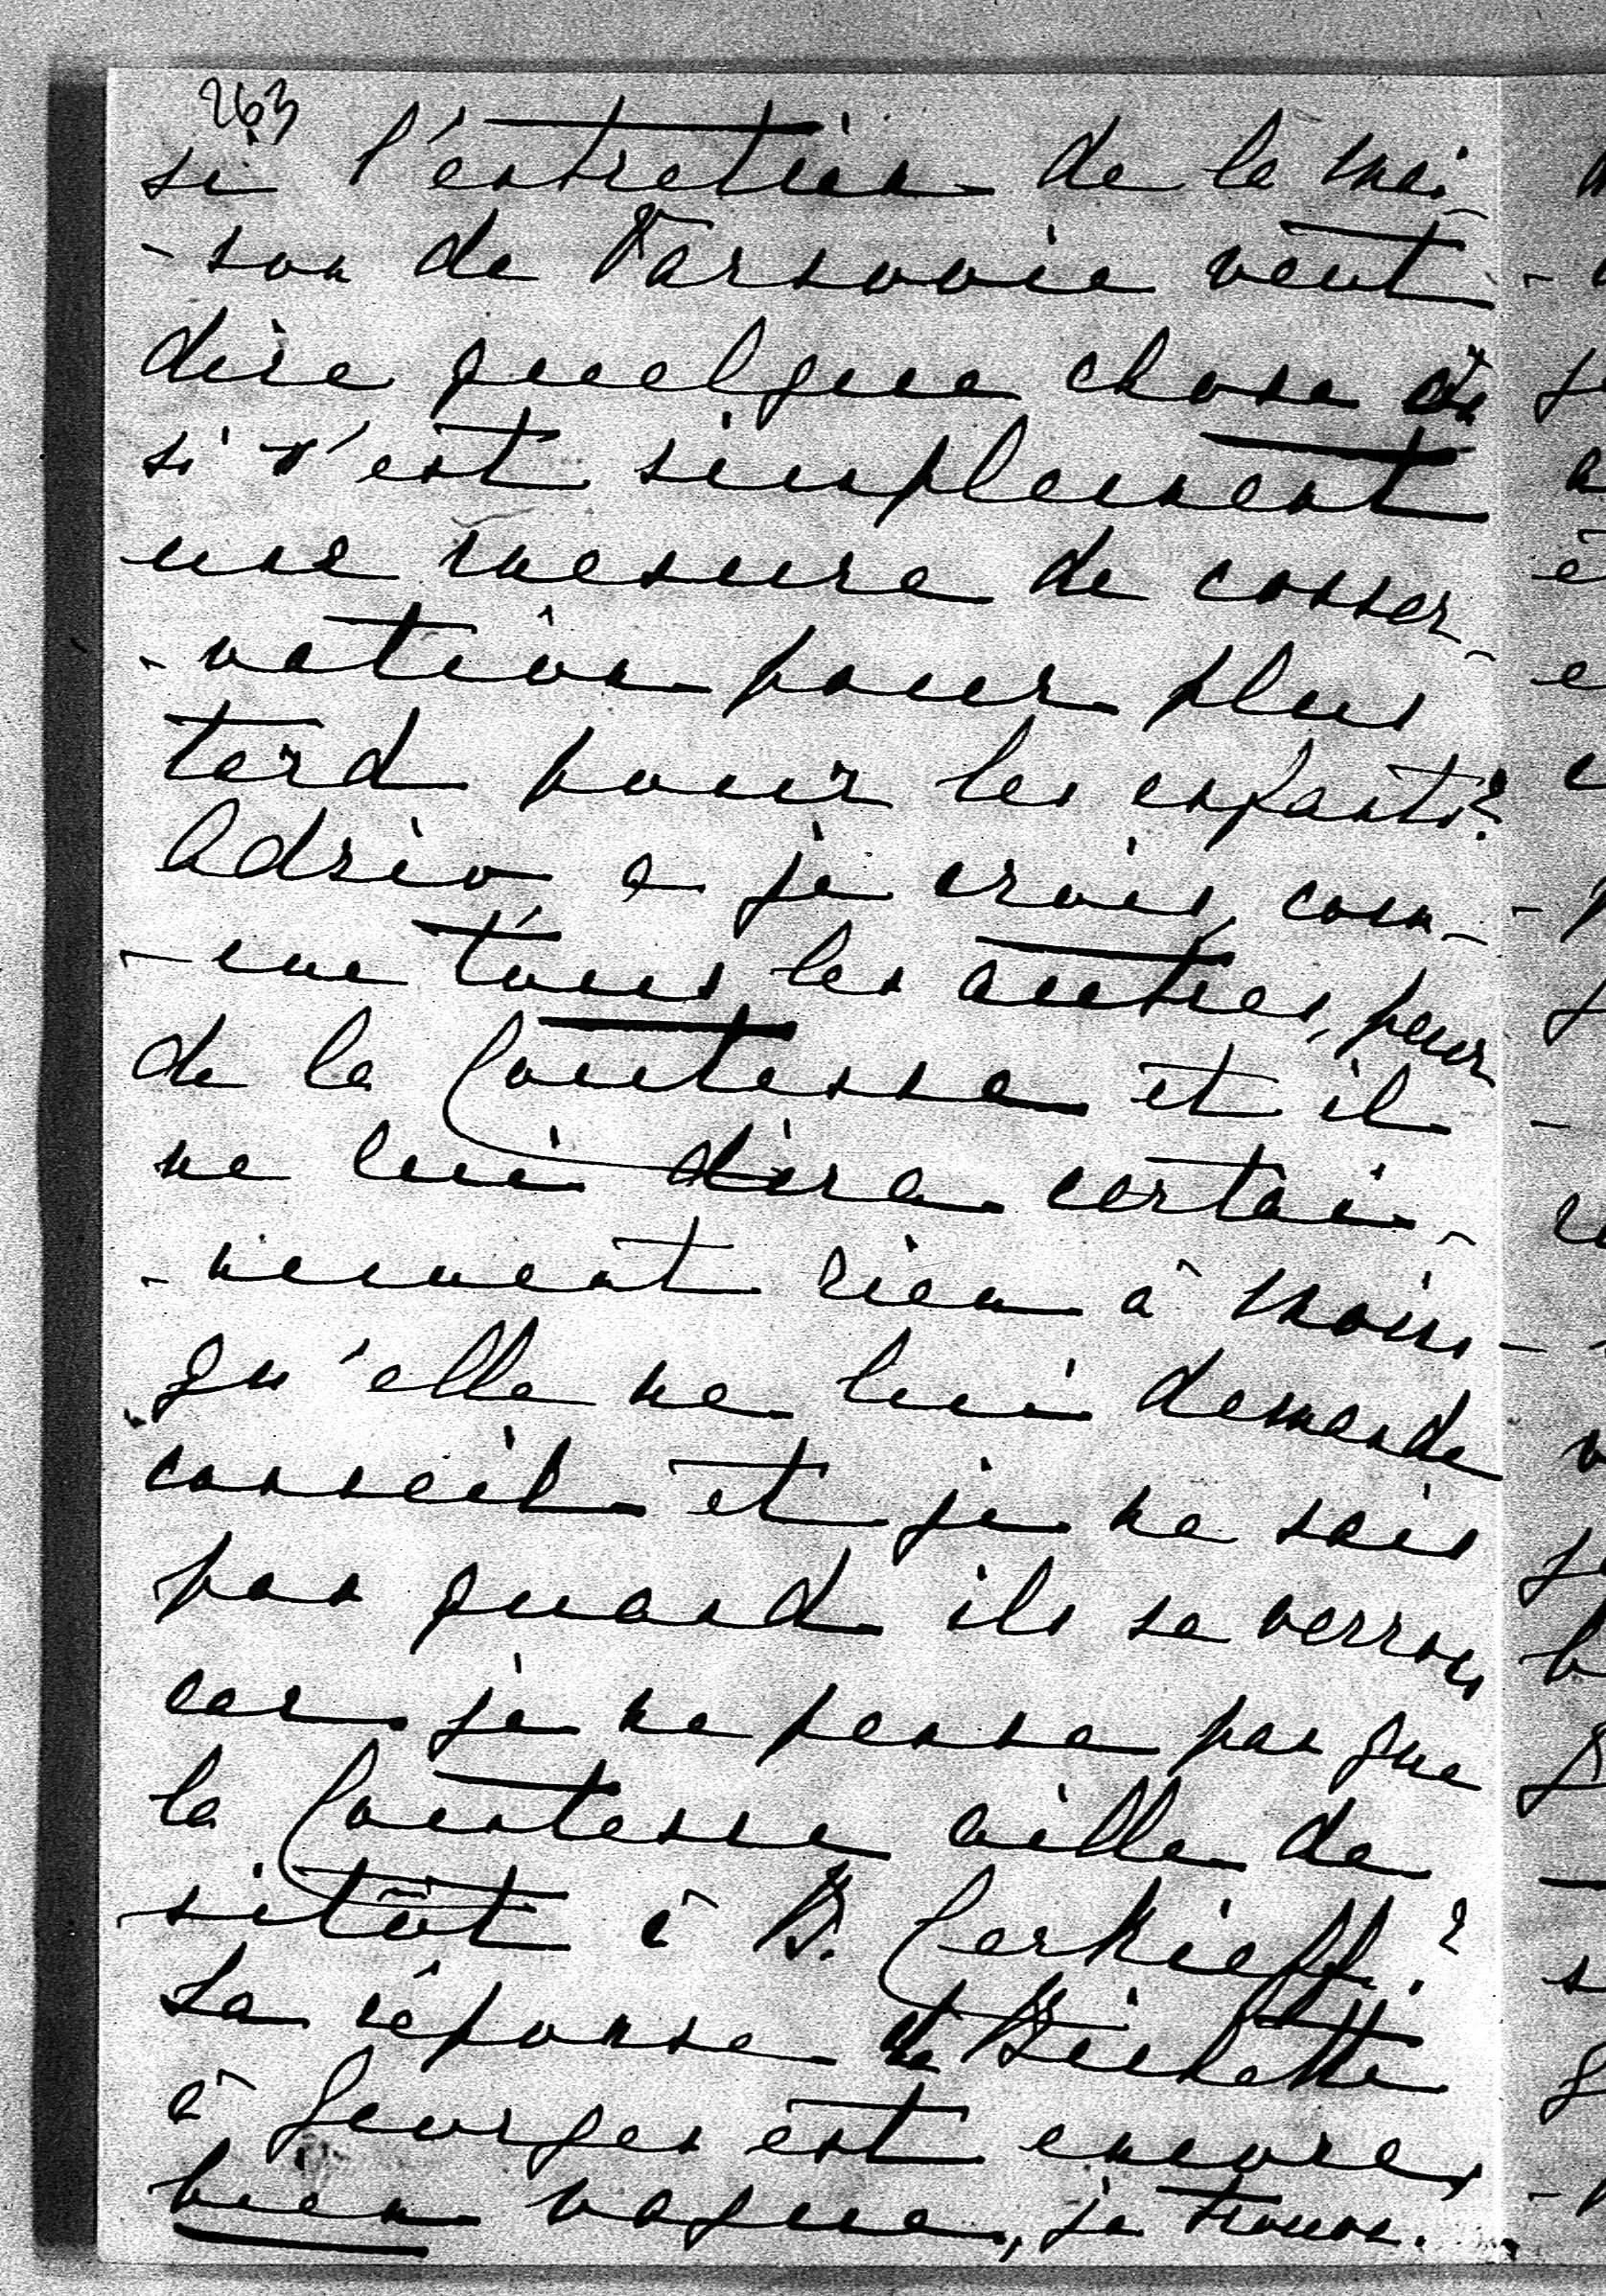 263
si l'entretien de la mai-
-son de Varsovie veut
dire quelque chose où
si c'est simplement
une mesure de conser-
-vation pour plus
tard pour les enfants?
Adrio a je crois, com-
-me tous les autres, peur
de la Comtesse et il
ne lui dira certai-
-nement rien à moins
qu'elle ne lui demande
conseil et je ne sais
pas quand ils se verront
car je ne pense pas que
la Comtesse aille de
sitôt à B. Cerkieff?
La réponse de
à Georges est encore,
bien vague, je trouve.